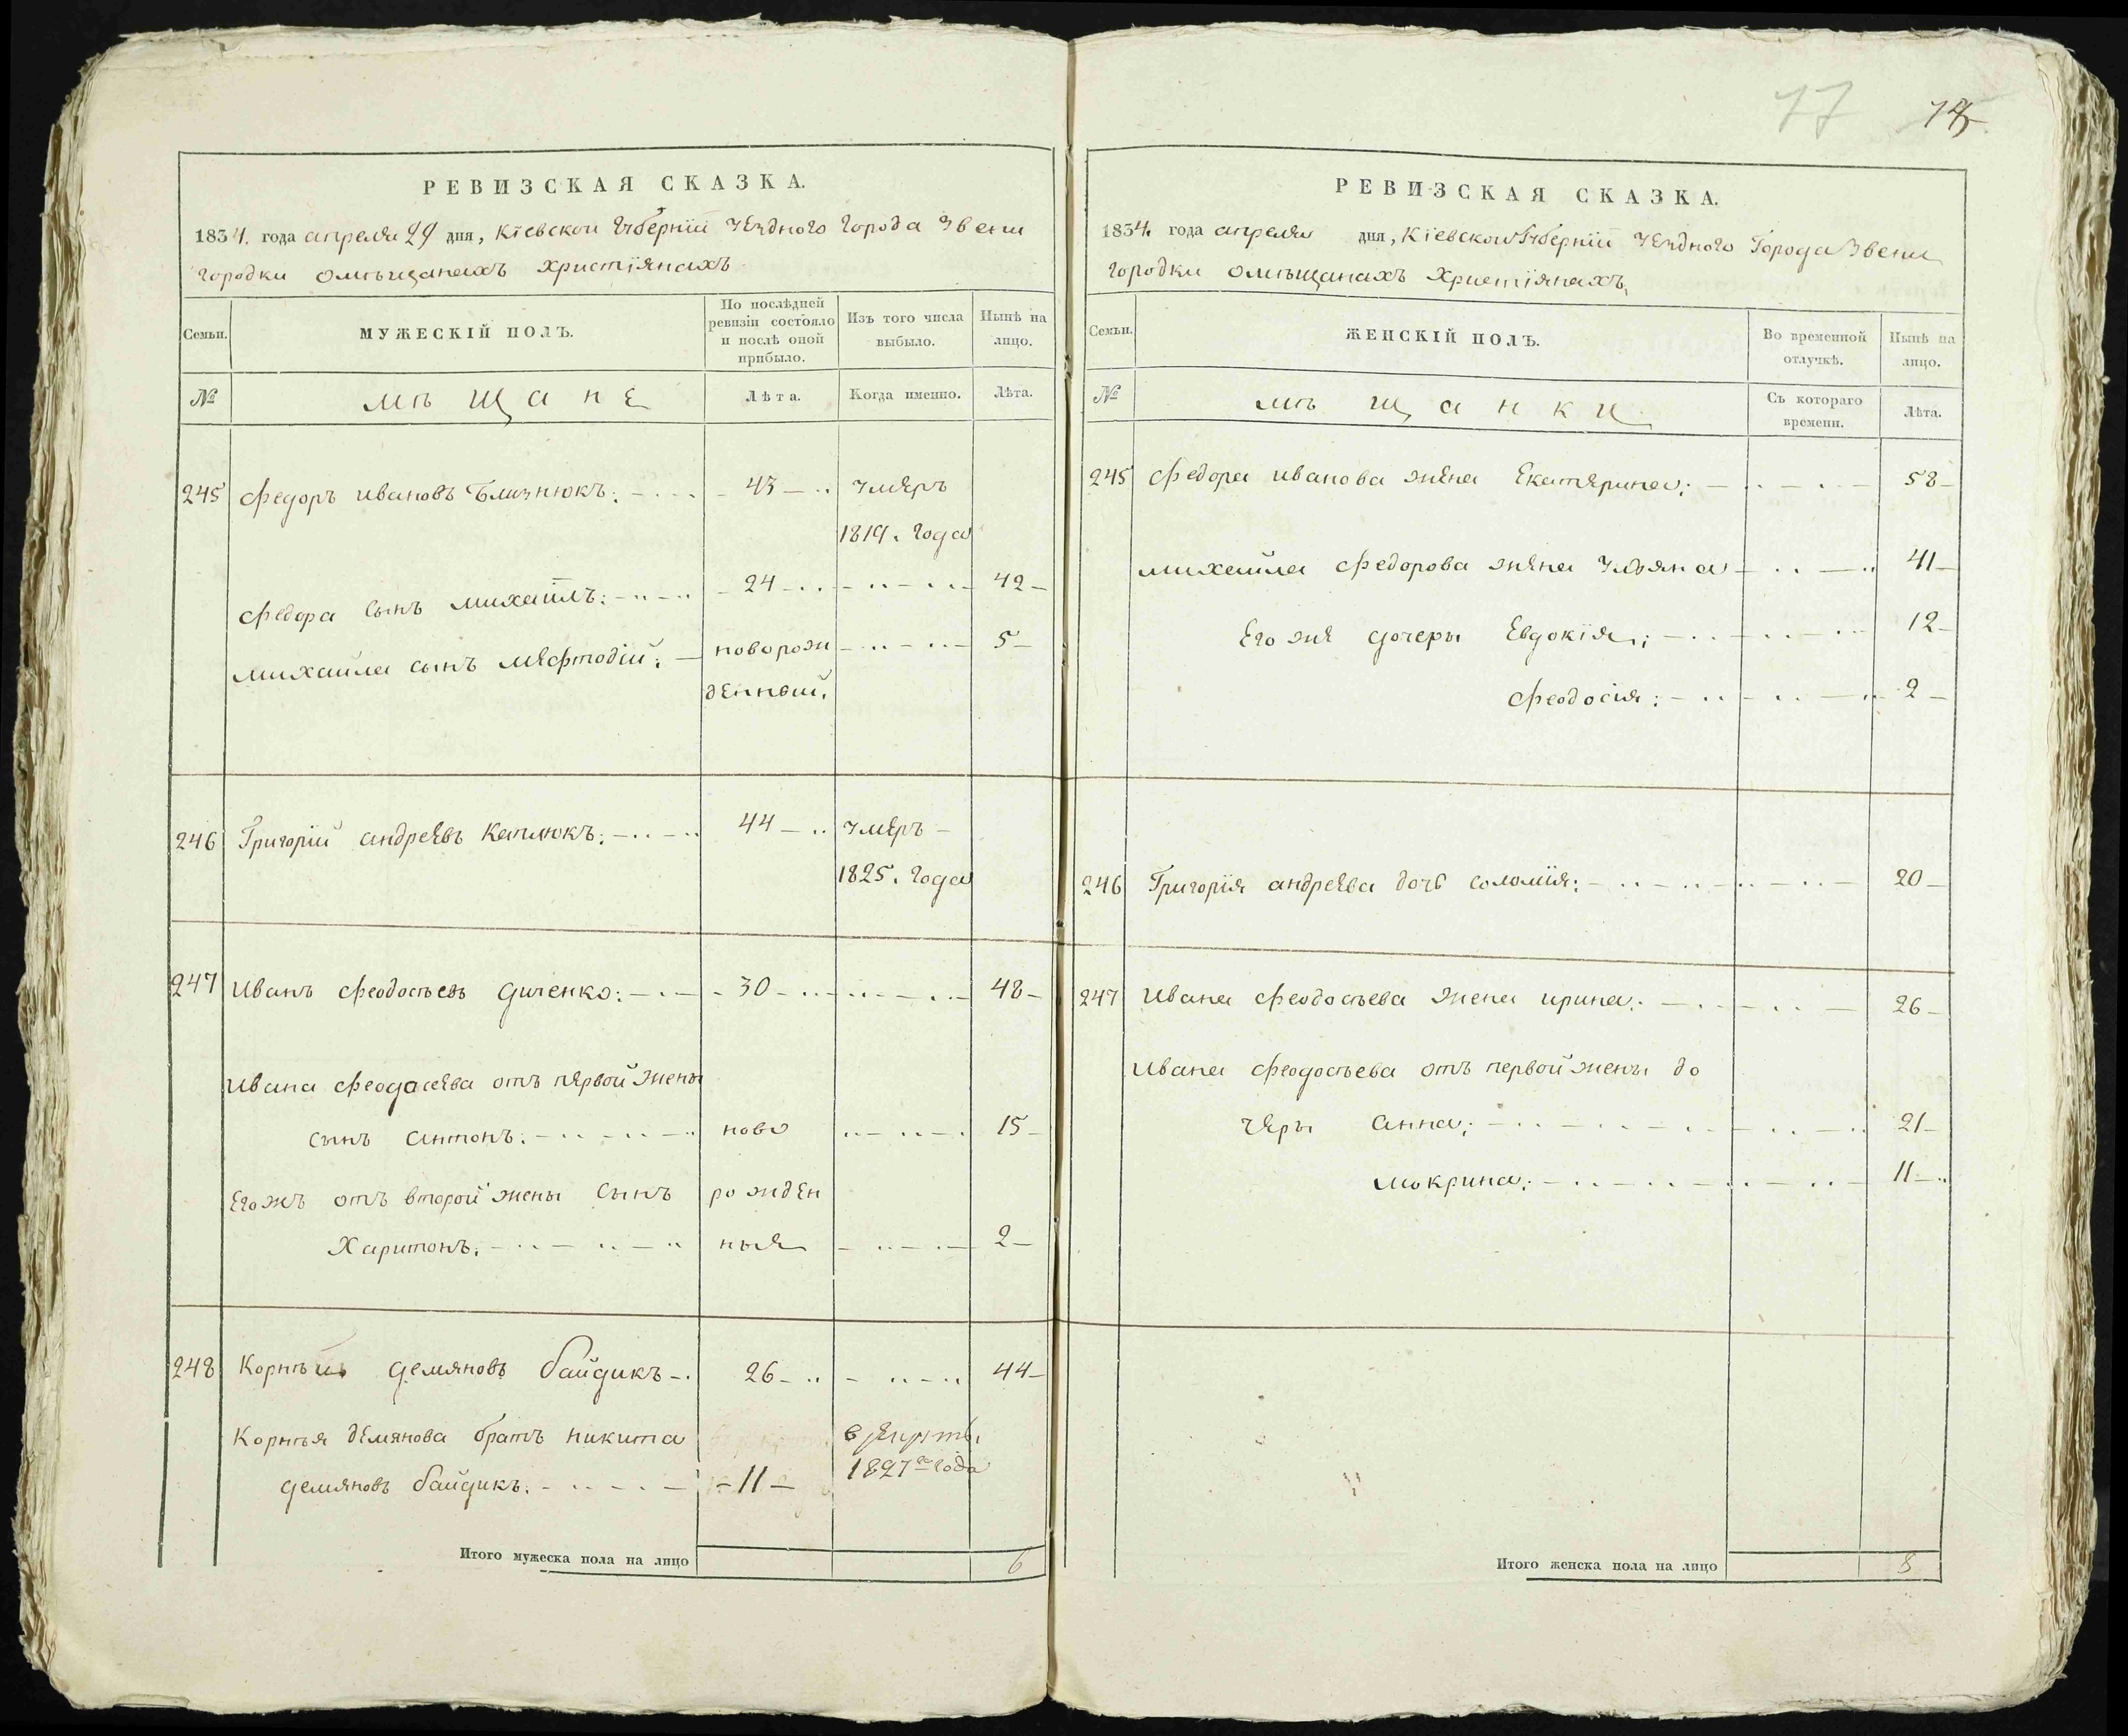 РЕВИЗСКАЯ СКАЗКА.
1834. года апреля 29 дня, Кіевской Губерніи Уезднаго Города Звени
городки омѣщанахъ христіянахъ
Семьи.
МУЖЕСКІЙ ПОЛЪ.
По послѣдней ревизіи состояло и послѣ оной прибыло.
Изъ того числа выбыло.
Нынѣ на лицо.
№
мѣщане
Лѣта.
Когда именно.
Лѣта.
245 Федоръ Ивановъ Близнюкъ: 43 умеръ
1819. года
Федора сынъ михаилъ: 24 42
михаила сынъ мефтодій: новорож 5
денный.
246 Григорій андреевъ Каплюкъ: 44 умеръ
1825. года
247 Иванъ Феодосьевъ диченко: 30 48
Ивана Феодасева отъ первой жены
сынъ антонъ: ново 15
Его жъ отъ второй жены сынъ рожден
Харитонъ: ныя 2
248 Корнѣй демяновъ байдикъ 26 44
Корнѣя демянова братъ никита
демяновъ байдикъ: 11 1827го года
Итого мужеска пола на лицо 6
17
РЕВИЗСКАЯ СКАЗКА.
1834 года апреля дня, Кіевской Губерніи Уездного Города Звени
городки омѣщанахъ Христіянахъ,
Семьи.
ЖЕНСКІЙ ПОЛЪ.
Во временной отлучкѣ.
Нынѣ на лицо.
№
мѣщанки
Съ котораго времени.
Лѣта.
245 Федора иванова жена Екатерина: 58
михайла Федорова жена Ульяна 41
Его же дочеры Евдокія: 12
Феодосія: 2
246 Григорія андреева дочь соломія: 20
247 Ивана Феодосьева жена ирина: 26
Ивана Феодосьева отъ первой жены до
черы анна: 21
мокрина: 11
Итого женска пола на лицо 8